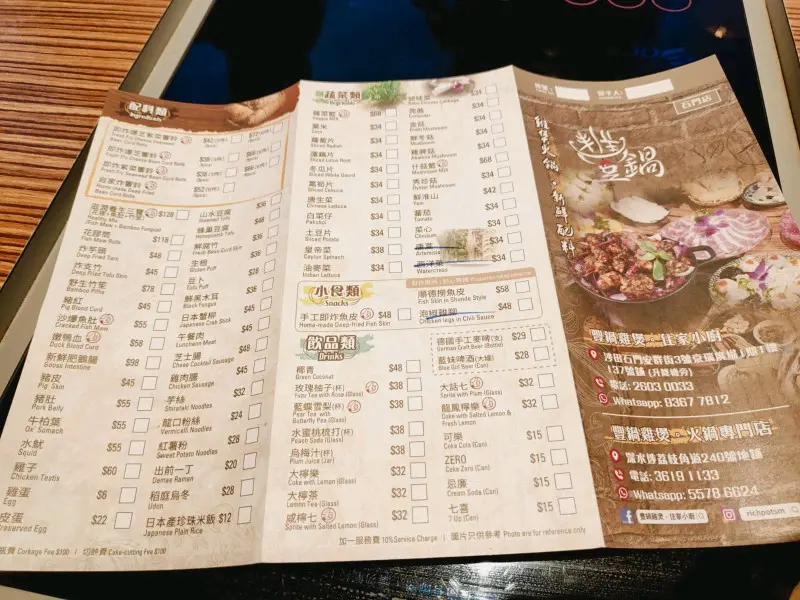 配料類
Ingredients
即炸腐皮紫菜響鈴 $42
即炸腐竹響鈴 $38 $68
即炸紫菜響鈴 $38 $68
Bean Curd Rolls $52
$128
花膠筒 $118
Fish Maw Rolls
炸芋頭 $48
Deep Fried Taro
炸支竹 $45
Deep Fried Tofu Skin
野生竹笙 $78
Bamboo Pitha
豬紅 $45
Pig Blood Curd
沙爆魚肚 $55
Cracked Fish Maw
嫩鴨血 $58
Duck Blood Curd
新鮮肥鵝腸 $98
Goose Intestine
豬皮 $45
Pig Skin
豬肚 $55
Pork Belly
牛柏葉 $55
Ox Stomach
水魷 $55
Squid
雞子 $60
Chicken Testis
雞蛋 $6
Egg
皮蛋 $22
Preserved Egg
山水豆腐 $36
蜂巢豆腐 $38
鮮腐竹 $36
Fresh Bean Curd Skin
生根 $36
Gluten Puff
豆卜 $28
Tofu Puff
鮮黑木耳 $36
Black Fungus
日本蟹柳 $45
Japanese Crab Stick
午餐肉 $45
Luncheon Meat
芝士腸 $48
Cheese Cocktail Sausage
雞肉腸 $45
Chicken Sausage
芋絲 $32
Shirataki Noodles
龍口粉絲 $24
Vermicelli Noodles
紅薯粉 $28
Sweet Potato Noodles
出前一丁 $20
Demae Ramen
稻庭烏冬 $28
Udon
日本產珍珠米飯 $12
Japanese Plain Rice
Corkage Fee $100 | 切餅費 Cake-cutting Fee $100
蔬菜類
Vegetables
雜菜籃 $88
Veggie Mix
粟米 $34
Corn
蘿蔔片 $34
Sliced Radish
蓮藕片 $34
Sliced Lotus Root
冬瓜片 $34
Sliced White Gourd
萵筍片 $38
Sliced Celtuce
唐生菜 $34
Chinese Lettuce
白菜仔 $34
Pakchoi
土豆片 $34
Sliced Potato
皇帝菜 $38
Ceylon Spinach
油麥菜 $34
Indian Lettuce
娃娃菜 $34
芫茜 $34
Coriander
金菇 $34
鮮冬菇 $34
Fresh Mushroom
雞髀菇 $34
什菇籃 $68
Mushroom Mix
秀珍菇 $34
Oyster Mushroom
鮮淮山 $42
Yam
番茄 $34
Tomato
菜心 $34
Choisum
$34
Artemisia
西洋菜 $34
Watercress
小食類
Snacks
手工即炸魚皮 $48
Home-made Deep-fried Fish Skin
順德撈魚皮 $58
Fish Skin in Shunde Style
泡椒雞腳 $48
Chicken legs in Chili Sauce
飲品類
Drinks
椰青 $48
Green Coconut
玫瑰柚子(杯) $38
Yuzu Tea with Rose (Glass)
藍蝶雪梨(杯) $38
Pear Tea with
Butterfly Pea (Glass)
水蜜桃梳打(杯) $38
Peach Soda (Glass)
烏梅汁(杯) $38
Plum Juice (Jar)
大檸樂 $32
Coke with Lemon (Glass)
大檸茶 $32
Lemon Tea (Glass)
咸檸七 $32
Sprite with Salted Lemon (Glass)
德國手工麥啤(支) $29
German Craft Beer (Bottle)
藍妹啤酒(大樽) $28
Blue Girl Beer (Can)
大話七 $32
Sprite with Plum (Glass)
龍鳳檸樂 $32
Coke with Salted Lemon &
Fresh Lemon (Glass)
可樂 $15
Coke Cola (Can)
ZERO $15
Coke Zero (Can)
忌廉 $15
Cream Soda (Can)
七喜 $15
7 Up (Can)
加一服務費 10% Service Charge | 圖片只供參考 Photo are for reference only
石門店
雞煲火鍋·新鮮配料
豐鍋雞煲·佳家小廚
沙田石門安群街3號京瑞廣場1期1樓
137號舖(升降機旁)
電話: 2603 0033
Whatsapp: 9367 7812
豐鍋雞煲·火鍋專門店
深水埗荔枝角道240號地舖
電話: 3619 1133
Whatsapp: 5578 6624
豐鍋雞煲·佳家小廚
richpotsm